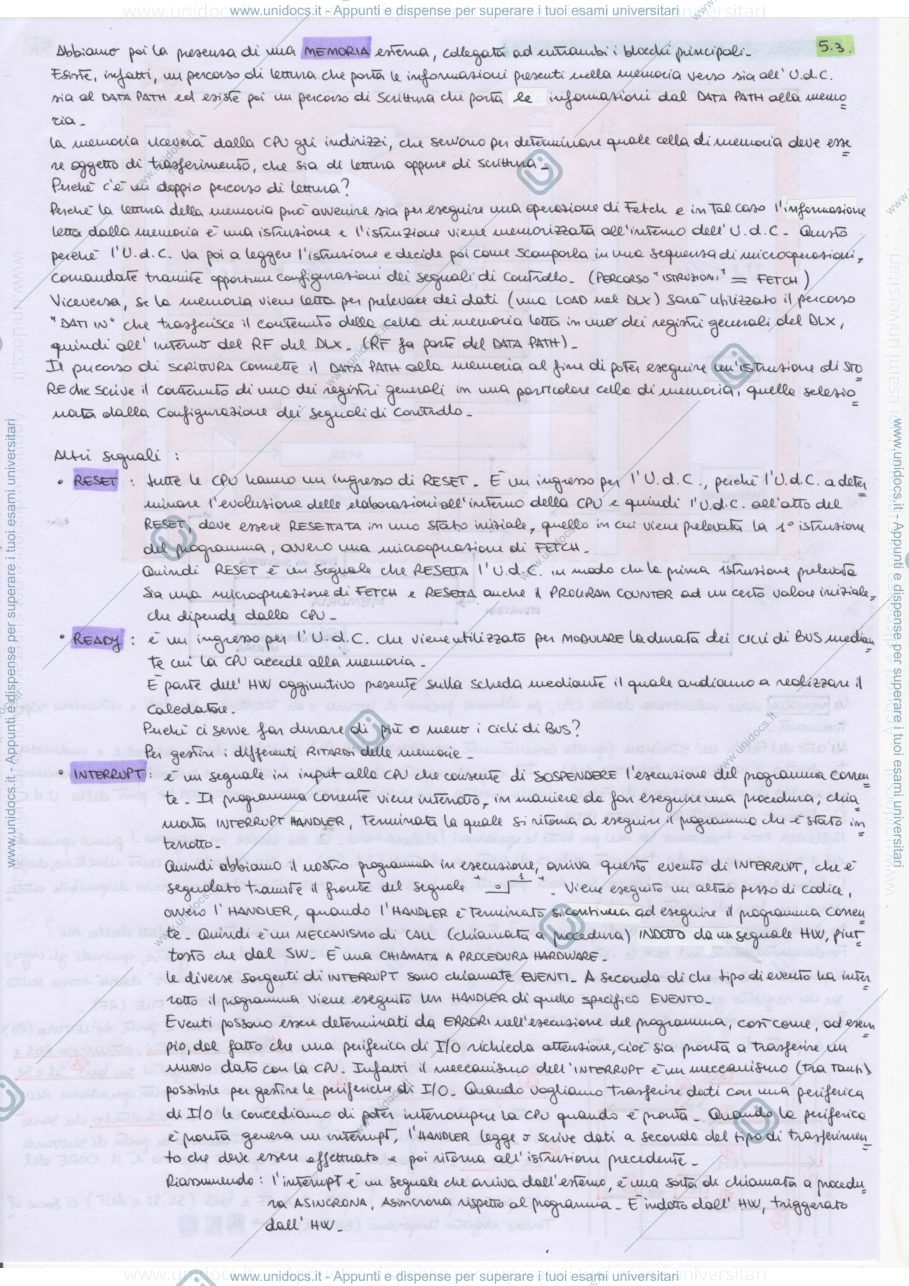 www.unidocs.it - Appunti e dispense per superare i tuoi esami universitari
5.3.
Abbiamo poi la presenza di una MEMORIA esterna, collegata ad entrambi i blocchi principali.
Esiste, infatti, un percorso di lettura che porta le informazioni presenti nella memoria verso sia all'U.d.C.
sia al DATA PATH ed esiste poi un percorso di scrittura che porta le informazioni dal DATA PATH alla memo
ria.
La memoria riceverà dalla CPU gli indirizzi, che servono per determinare quale cella di memoria deve esse
re oggetto di trasferimento, che sia di lettura oppure di scrittura.
Perché c'è un doppio percorso di lettura?
Perché la lettura della memoria può avvenire sia per eseguire una operazione di Fetch e in tal caso l'informazione
letta dalla memoria è una istruzione e l'istruzione viene memorizzata all'interno dell'U.d.C. Questo
perché l'U.d.C. va poi a leggere l'istruzione e decide poi come scomporla in una sequenza di microoperazioni,
comandate tramite opportune configurazioni dei segnali di controllo. (PERCORSO "ISTRUZIONI" = FETCH)
Viceversa, se la memoria viene letta per prelevare dei dati (una LOAD nel DLX) sarà utilizzato il percorso
"DATI IN" che trasferisce il contenuto della cella di memoria letta in uno dei registri generali del DLX,
quindi all'interno del RF del DLX. (RF fa parte del DATA PATH).
Il percorso di SCRITTURA connette il DATA PATH alla memoria al fine di poter eseguire un'istruzione di STO
RE che scrive il contenuto di uno dei registri generali in una particolare cella di memoria, quella selezio
nata dalla configurazione dei segnali di controllo.
Altri segnali :
• RESET : tutte le CPU hanno un ingresso di RESET. È un ingresso per l'U.d.C., perché l'U.d.C. a deter
minare l'evoluzione delle elaborazioni all'interno della CPU e quindi l'U.d.C. all'atto del
RESET, deve essere RESETTATA in uno stato iniziale, quello in cui viene prelevata la 1° istruzione
del programma, ovvero una microoperazione di FETCH.
Quindi RESET è un segnale che RESETTA l'U.d.C. in modo che la prima istruzione prelevata
sia una microoperazione di FETCH e RESETTA anche il PROGRAM COUNTER ad un certo valore iniziale,
che dipende dalla CPU.
• READY : è un ingresso per l'U.d.C. che viene utilizzato per MODULARE la durata dei CICLI di BUS median
te cui la CPU accede alla memoria.
È parte dell'HW aggiuntivo presente sulla scheda mediante il quale andiamo a realizzare il
calcolatore.
Perché ci serve far durare di più o meno i cicli di BUS?
Per gestire i differenti RITARDI delle memorie.
INTERRUPT : è un segnale in input alla CPU che consente di SOSPENDERE l'esecuzione del programma corren
te. Il programma corrente viene interrotto, in maniera da far eseguire una procedura, chia
mata INTERRUPT HANDLER, terminata la quale si ritorna a eseguire il programma che è stato in
terrotto.
Quindi abbiamo il nostro programma in esecuzione, arriva questo evento di INTERRUPT, che è
segnalato tramite il fronte del segnale 0 1. Viene eseguito un altro pezzo di codice,
ovvero l'HANDLER, quando l'HANDLER è terminato si continua ad eseguire il programma corren
te. Quindi è un MECCANISMO di CALL (chiamata a procedura) INDOTTO da un segnale HW, piut
tosto che dal SW. È una CHIAMATA A PROCEDURA HARDWARE.
Le diverse sorgenti di INTERRUPT sono chiamate EVENTI. A seconda di che tipo di evento ha inter
rotto il programma viene eseguito un HANDLER di quello specifico EVENTO.
Eventi possono essere determinati da ERRORI nell'esecuzione del programma, così come, ad esem
pio, dal fatto che una periferica di I/O richieda attenzione, cioè sia pronta a trasferire un
nuovo dato con la CPU. Infatti il meccanismo dell'INTERRUPT è un meccanismo (tra tanti)
possibile per gestire le periferiche di I/O. Quando vogliamo trasferire dati con una periferica
di I/O le concediamo di poter interrompere la CPU quando è pronta. Quando la periferica
è pronta genera un interrupt, l'HANDLER legge o scrive dati a seconda del tipo di trasferimen
to che deve essere effettuato e poi ritorna all'istruzioni precedente.
Riassumendo : l'interrupt è un segnale che arriva dall'esterno, è una sorta di chiamata a procedu
ra ASINCRONA, asincrona rispetto al programma. È indotto dall'HW, triggerato
dall'HW.
www.unidocs.it - Appunti e dispense per superare i tuoi esami universitari